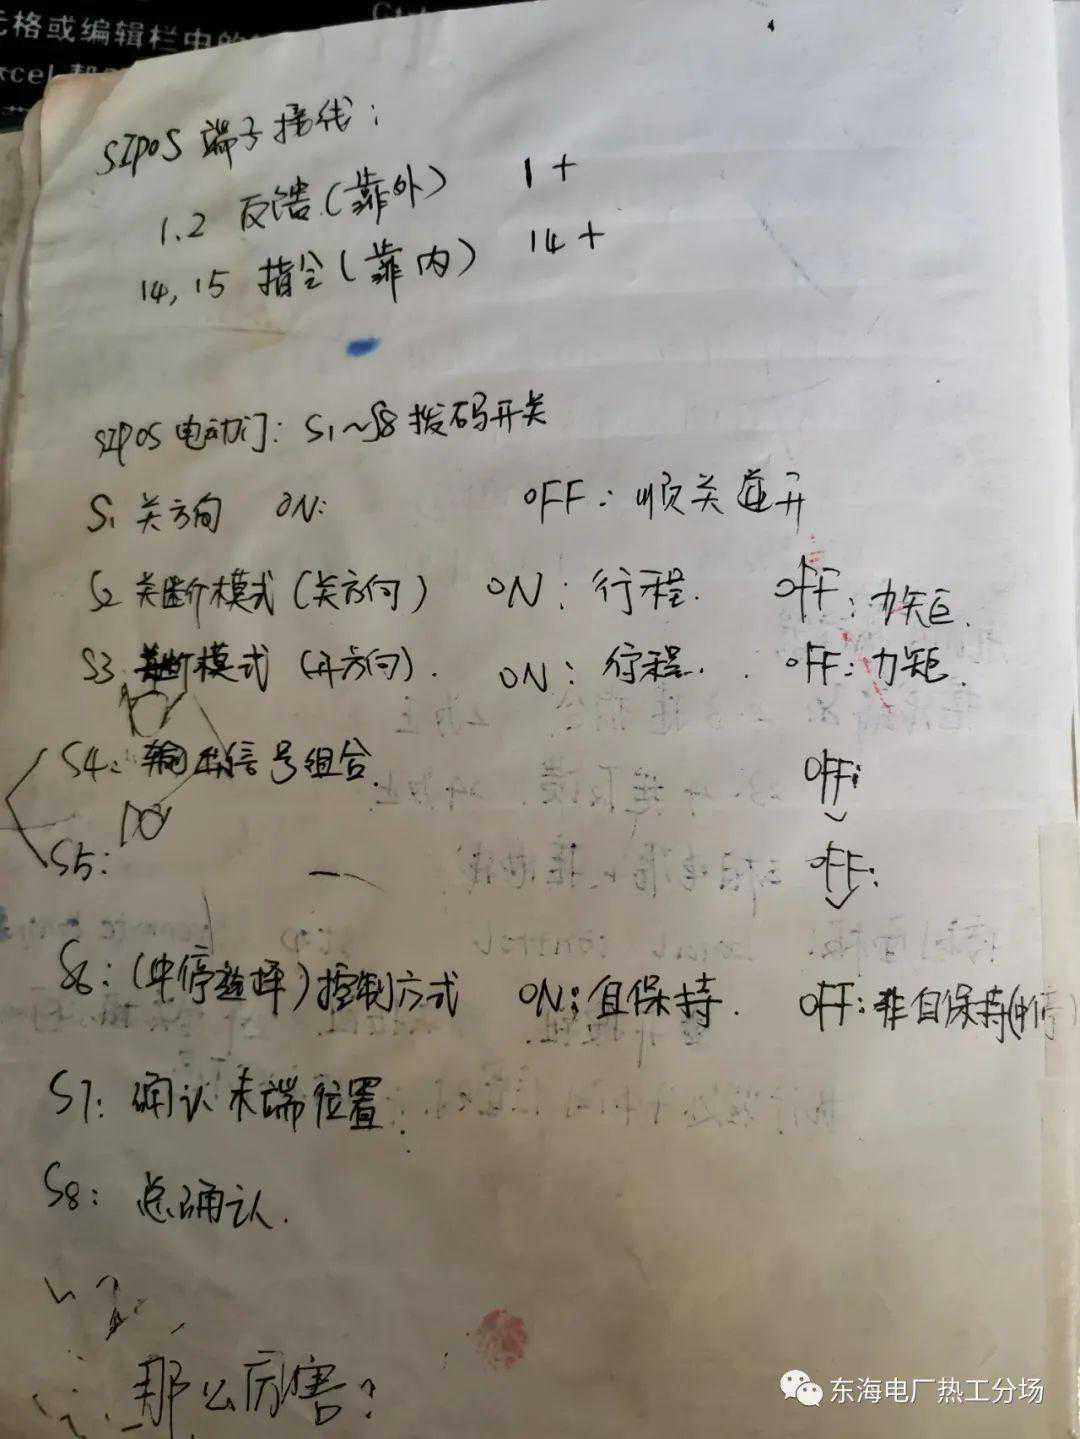 元格或编辑栏中的
Ctrl
xcel 帮
SIPOS 端子接线：
1.2 反馈（靠外） 1+
14, 15 指令（靠内） 14+
SIPOS 电动门：S1~S8 拨码开关
S1 关方向 ON: OFF：顺关逆开
S2 关断模式（关方向） ON：行程. OFF：力矩.
S3 关断模式（开方向）. ON：行程. OFF：力矩.
S4：输出信号组合. OFF:
S5: — OFF:
S6：（中停选择）控制方式 ON：自保持. OFF：非自保持(中停)
S7：确认末端位置.
S8：总确认.
那么厉害？
东海电厂热工分场